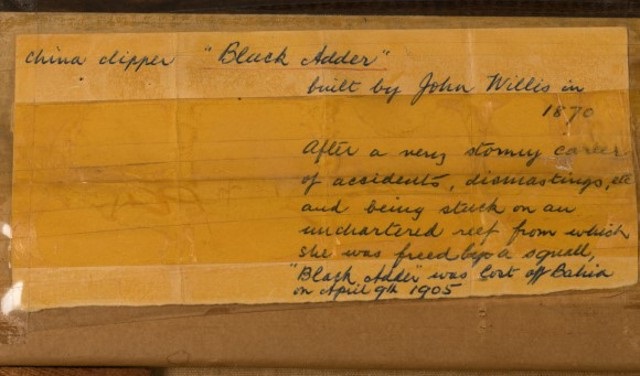 China clipper "Black Adder"
built by John Willis in
1870
After a very stormy career
of accidents, dismastings, etc
and being stuck on an
unchartered reef from which
she was freed by a squall,
"Black Adder" was lost off Bahia
on April 9th 1905